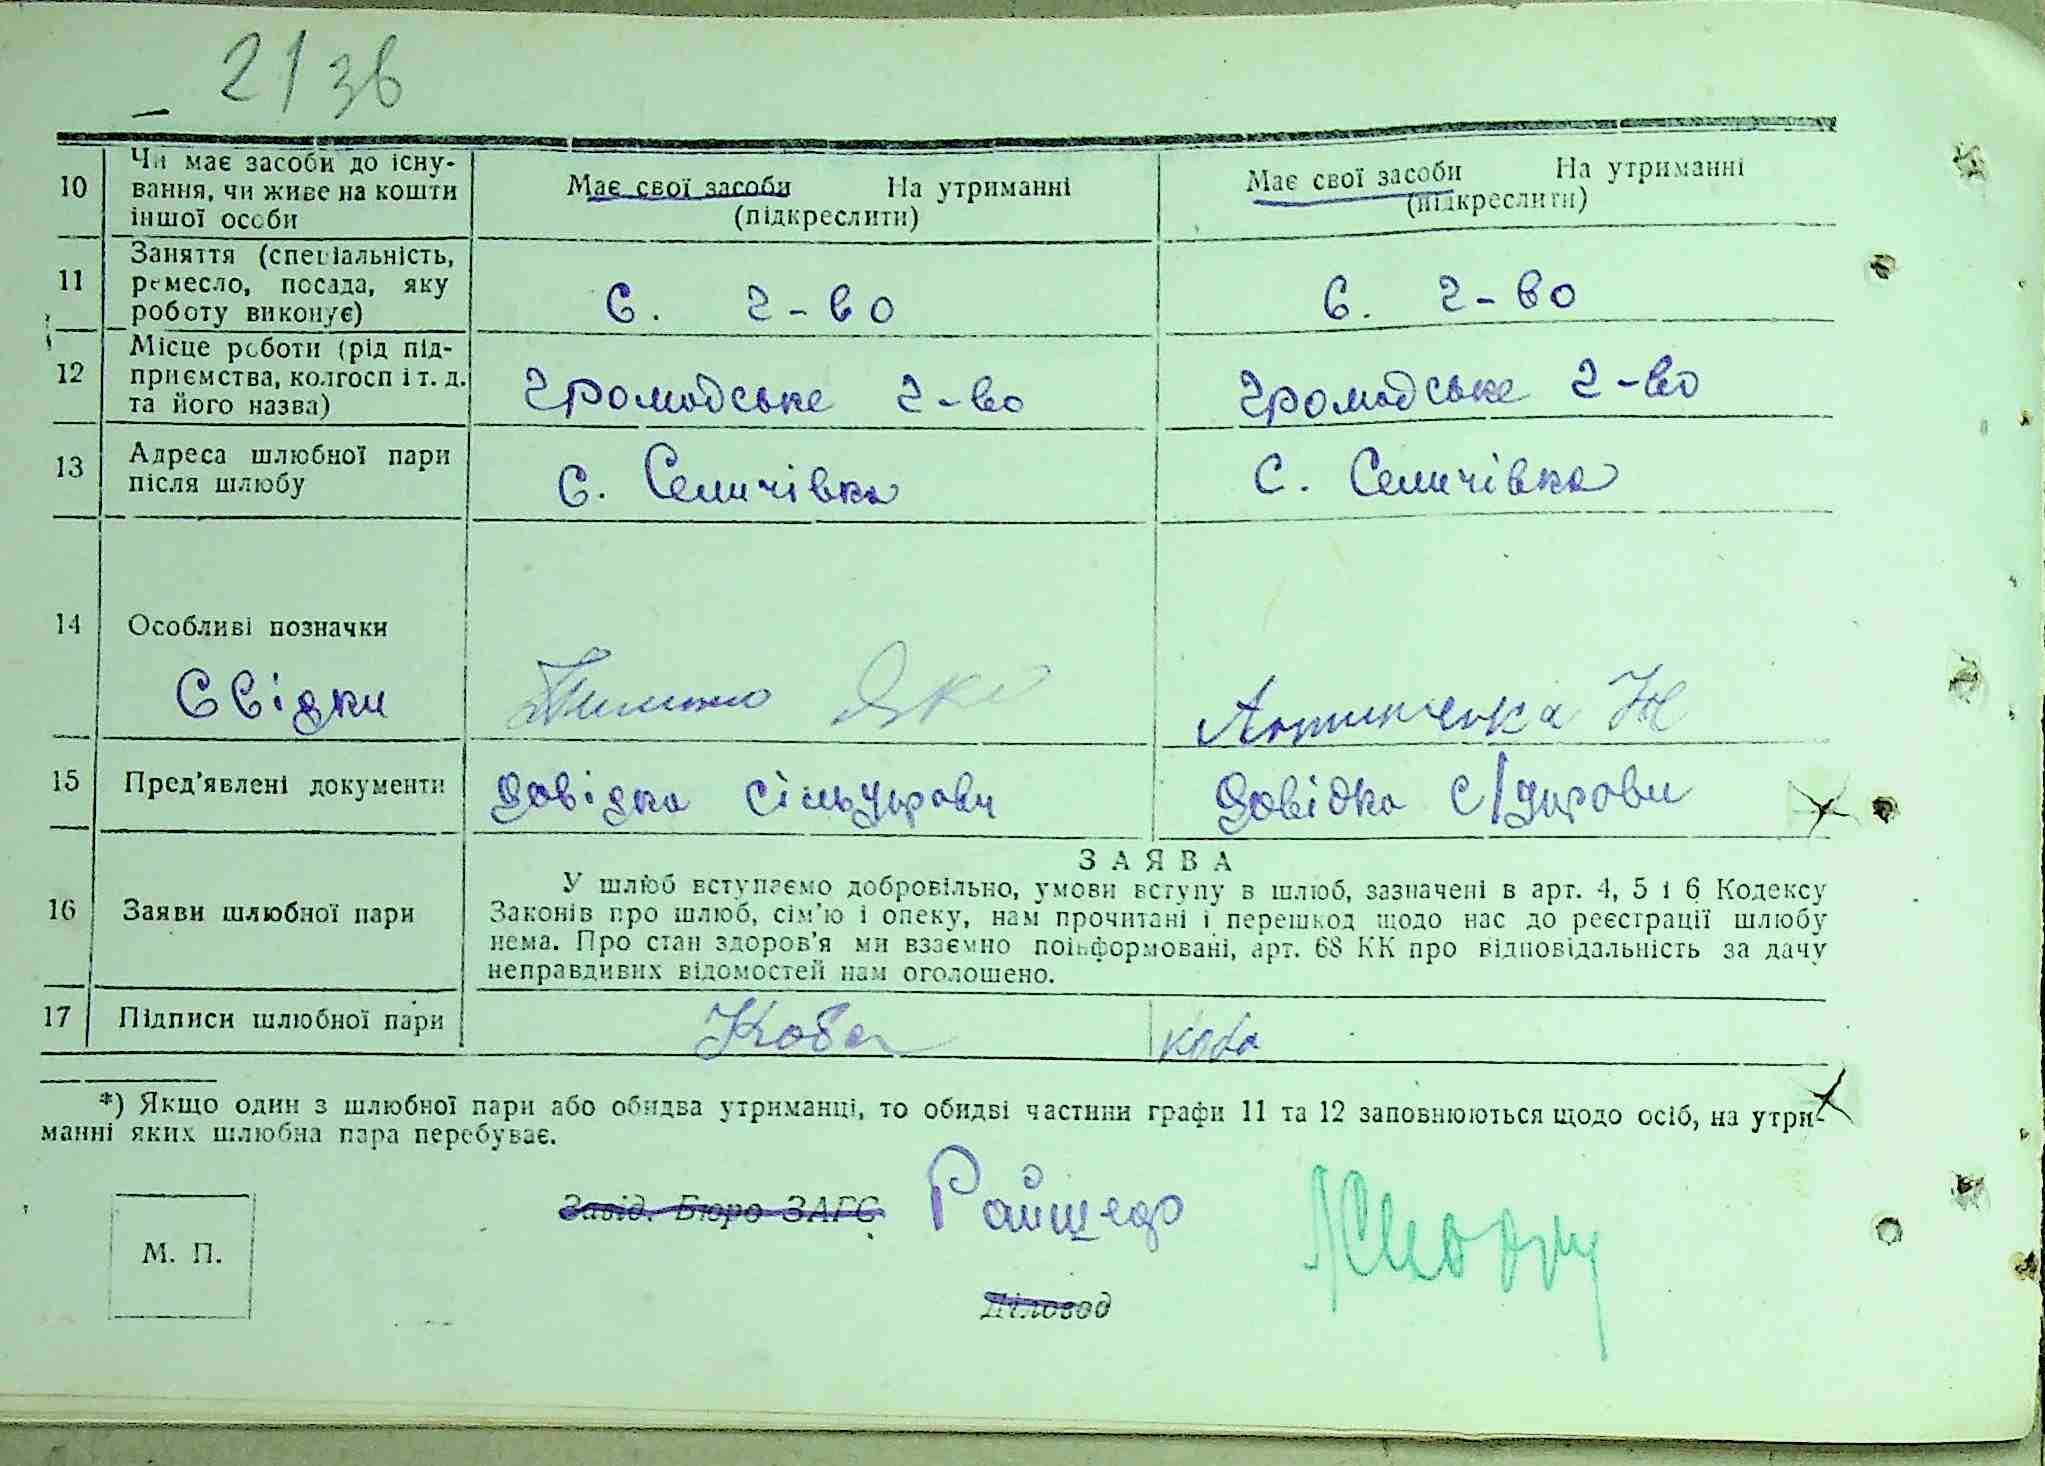 21 зв
10 Чи має засоби до існу-
вання, чи живе на кошти
іншої особи
Має свої засоби На утриманні
(підкреслити)
Має свої засоби На утриманні
(підкреслити)
11 Заняття (спеціальність,
ремесло, посада, яку
роботу виконує)
с. г-во
с. г-во
12 Місце роботи (рід під-
приємства, колгосп і т. д.
та його назва)
громадське г-во
громадське г-во
13 Адреса шлюбної пари
після шлюбу
с. Селичівка
с. Селичівка
14 Особливі позначки
Свідки
15 Пред'явлені документи
Довідка сільуправи
Довідка с/управи
16 Заяви шлюбної пари
ЗАЯВА
У шлюб вступаємо добровільно, умови вступу в шлюб, зазначені в арт. 4, 5 і 6 Кодексу
Законів про шлюб, сім'ю і опеку, нам прочитані і перешкод щодо нас до реєстрації шлюбу
нема. Про стан здоров'я ми взаємно поінформовані, арт. 68 КК про відповідальність за дачу
неправдивих відомостей нам оголошено.
17 Підписи шлюбної пари
Коба
Коба
*) Якщо один з шлюбної пари або обидва утриманці, то обидві частини графи 11 та 12 заповнюються щодо осіб, на утри-
манні яких шлюбна пара перебуває.
Завід. Бюро ЗАГС
М. П.
Діловод